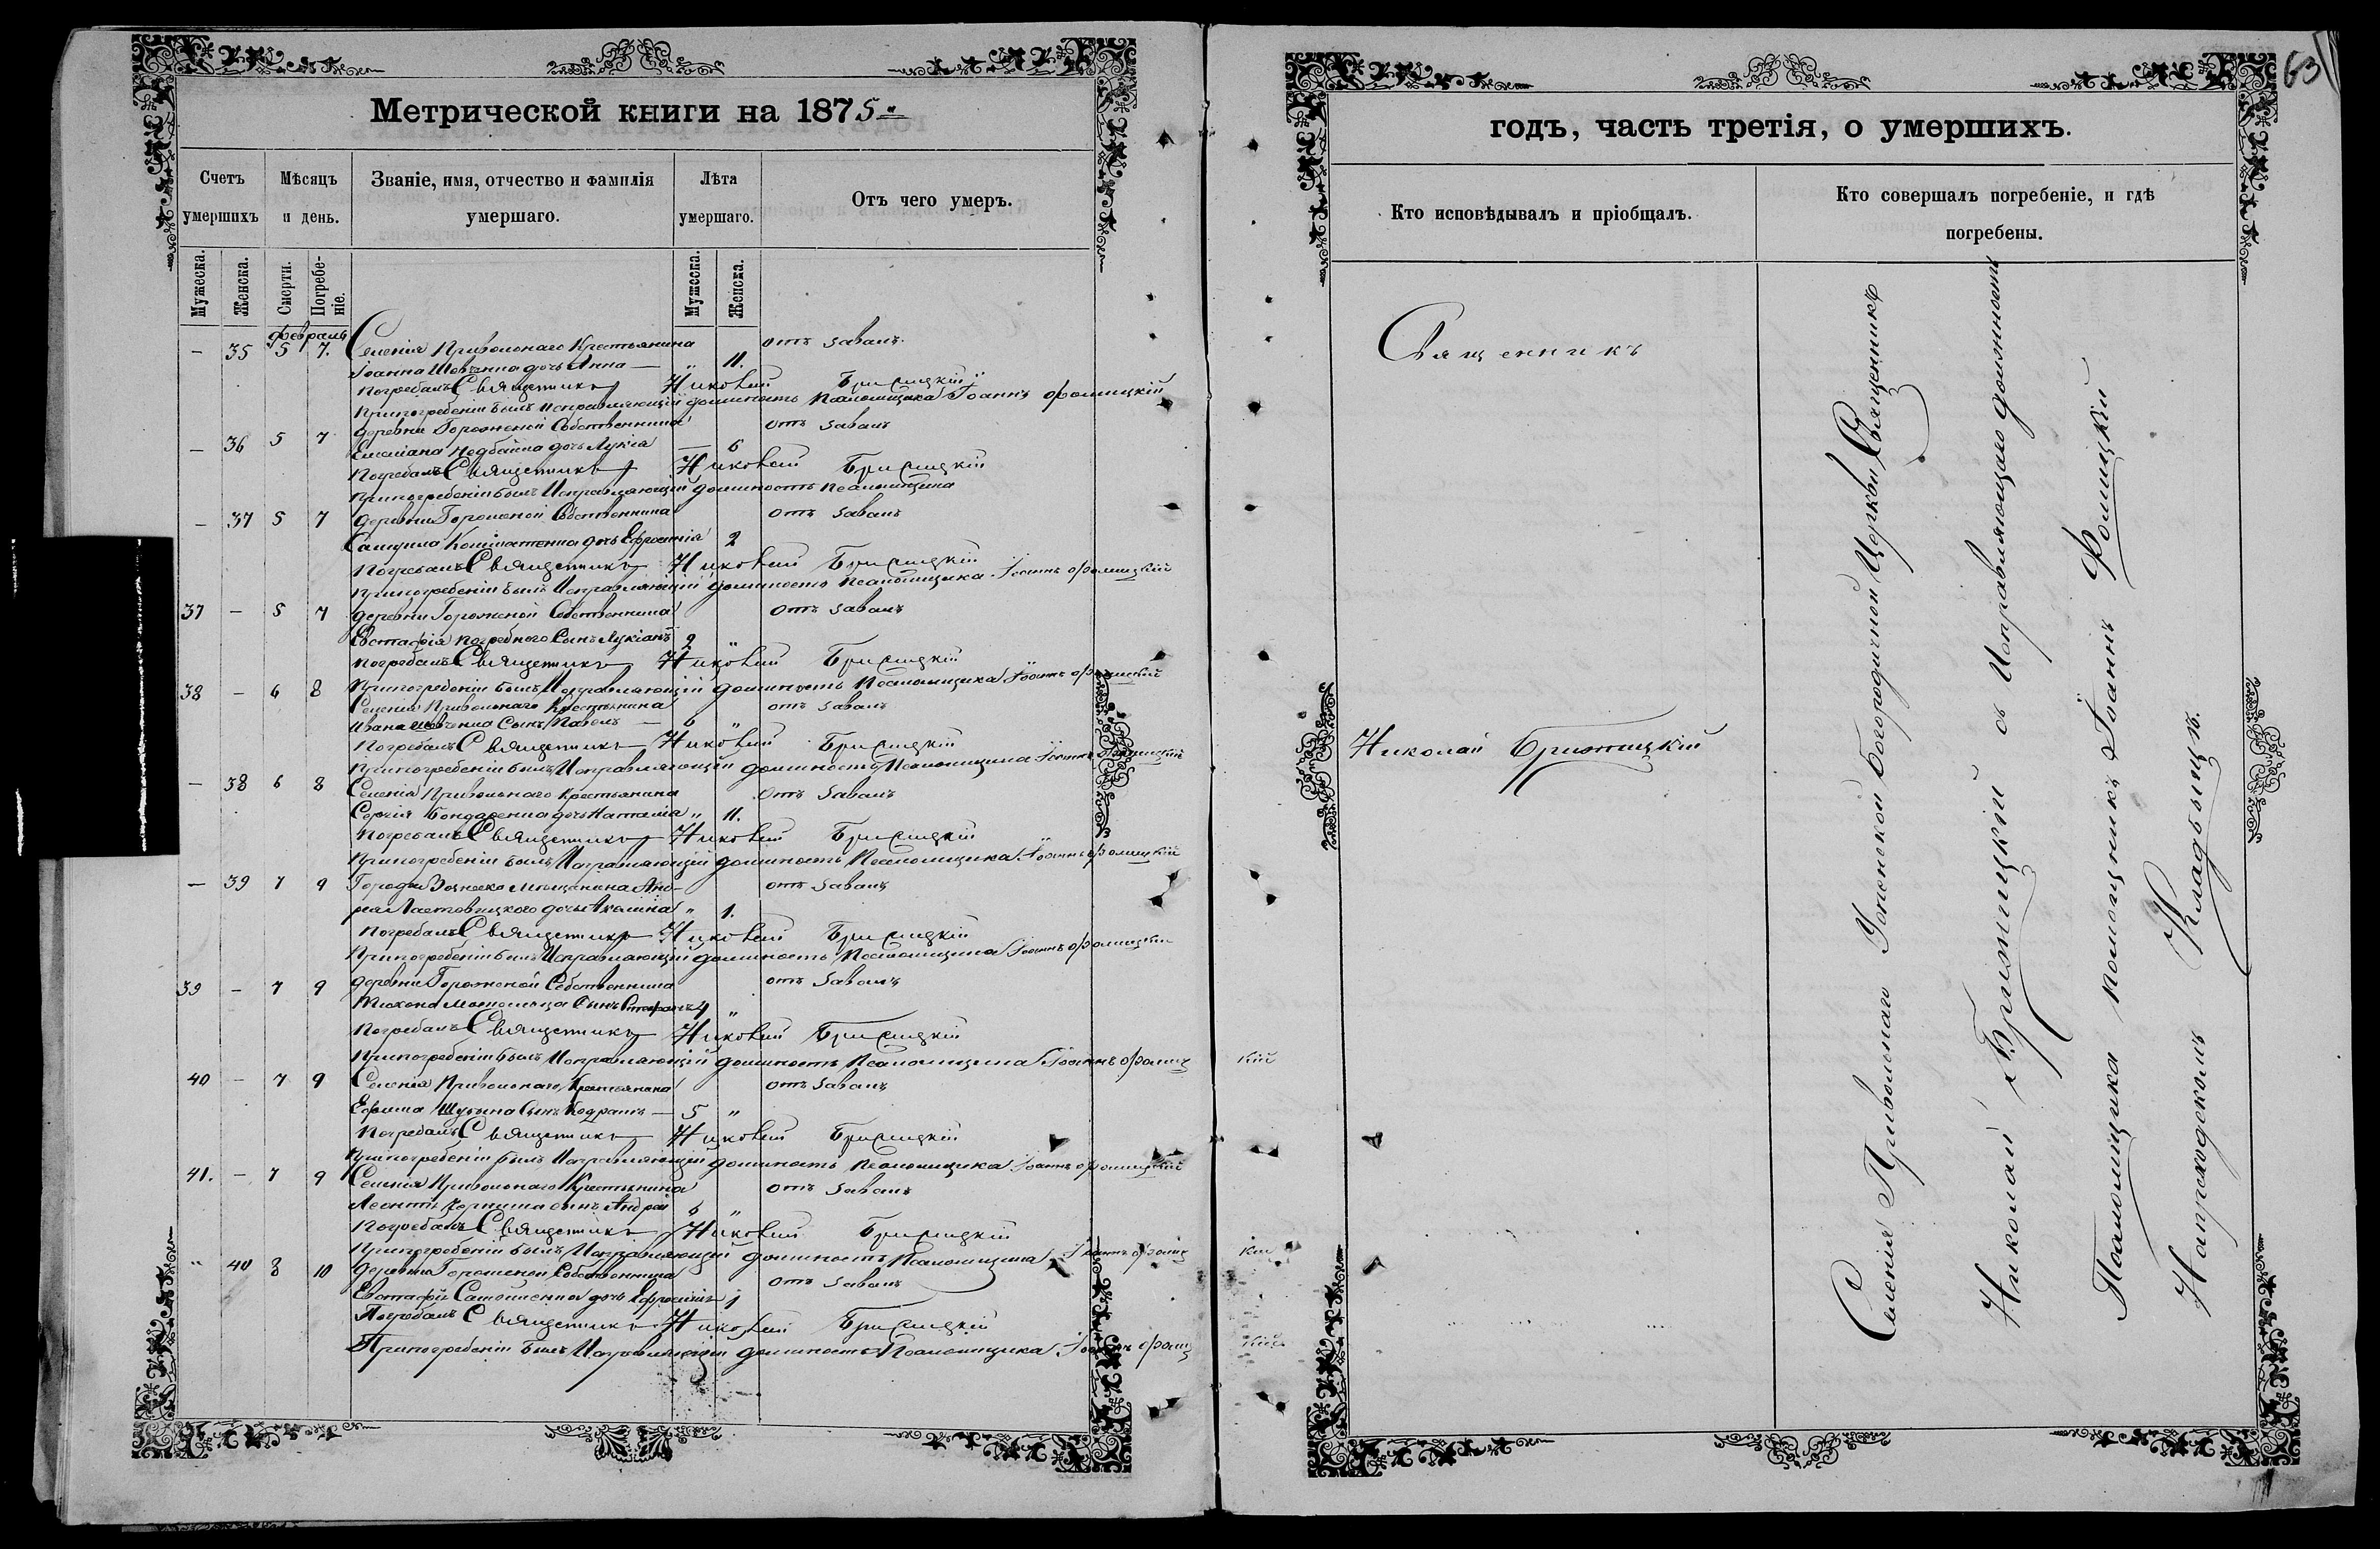 Метрической книги на 1875
Счетъ умершихъ
Мѣсяцъ и день.
Званіе, имя, отчество и фамилія умершаго.
Лѣта умершаго.
Отъ чего умеръ.
Мужеска.
Женска.
Смерти.
Погребеніе.
Мужеска.
Женска.
Февраль
— 35 5 7. Селенія Привольнаго Крестьянина отъ жабанъ
Іоанна Шевченка дочь Анна — „ 11.
Погребалъ Священникъ Николай Брижицкій
При погребеніи былъ Исправляющій должность Псаломщика Іоаннъ Фомицкій
— 36 5 7 деревни Гороженой Собственника отъ жабанъ
Емиліана дочь Лукія — 6
Погребалъ Священникъ Николай Брижицкій
При погребеніи былъ Исправляющій должность Псаломщика
— 37 5 7 деревни Гороженой Собственника отъ жабанъ
Самуила дочь Ефросинія 2
Погребалъ Священникъ Николай Брижицкій
При погребеніи былъ Исправляющій должность Псаломщика Іоаннъ Фомицкій
37 — 5 7 деревни Гороженой Собственника отъ жабанъ
Евстафія Погребного Сынъ Лукіанъ 2 „
Погребалъ Священникъ Николай Брижицкій
При погребеніи былъ Исправляющій должность Псаломщика Іоаннъ Фомицкій
38 — 6 8 Селенія Привольнаго Крестьянина отъ жабанъ
Ивана Шевченка Сынъ Павелъ — 6 „
Погребалъ Священникъ Николай Брижицкій
При погребеніи былъ Исправляющій должность Псаломщика Іоаннъ Фомицкій
— 38 6 8 Селенія Привольнаго Крестьянина отъ жабанъ
Сергія Бондаренка дочь Наталія „ 11.
Погребалъ Священникъ Николай Брижицкій
При погребеніи былъ Исправляющій должность Псаломщика Іоаннъ Фомицкій
— 39 7 9 Города Вознесенска Мѣщанина Анд-
рея Ластовицкого дочь Акилина „ 1.
Погребалъ Священникъ Николай Брижицкій
При погребеніи былъ Исправляющій должность Псаломщика Іоаннъ Фомицкій
39 — 7 9 деревни Гороженой Собственника отъ жабанъ
Тихона Сынъ Стефанъ 4 „
Погребалъ Священникъ Николай Брижицкій
При погребеніи былъ Исправляющій должность Псаломщика Іоаннъ Фомицкій
40 — 7 9 Селенія Привольнаго Крестьянина отъ жабанъ
Ефима Сынъ Кодратъ — 5 „
Погребалъ Священникъ Николай Брижицкій
При погребеніи былъ Исправляющій должность Псаломщика Іоаннъ Фомицкій
41. — 7 9 Селенія Привольнаго Крестьянина отъ жабанъ
Леонтія сынъ Андрей 6 „
Погребалъ Священникъ Николай Брижицкій
При погребеніи былъ Исправляющій должность Псаломщика Іоаннъ Фомицкій
„ 40 8 10 деревни Гороженой Собственника отъ жабанъ
Евстафія дочь Ефросинія 1
Погребалъ Священникъ Николай Брижицкій
При погребеніи былъ Исправляющій должность Псаломщика Іоаннъ Фомицкій
63
годъ, часть третія, о умершихъ.
Кто исповѣдывалъ и пріобщалъ.
Кто совершалъ погребеніе, и гдѣ погребены.
Священникъ
Николай Брижицкій
Селенія Привольнаго Успенской Богородичной Церкви Священникъ
Николай Брижицкій съ Исправляющаго должность
Псаломщика помощникъ Іоаннъ Фомицкій
На приходскомъ Кладбищѣ.